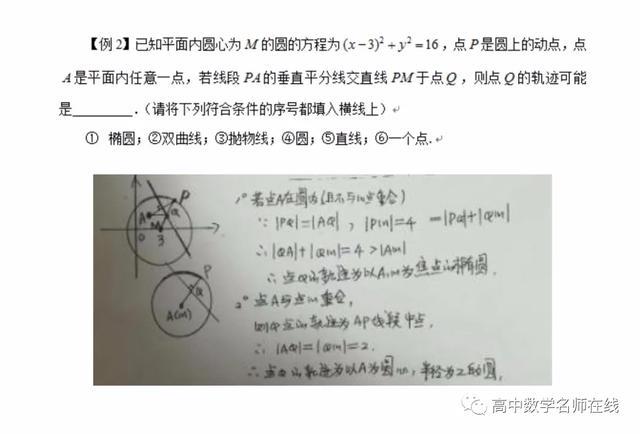 【例2】已知平面内圆心为M的圆的方程为(x-3)²+y²=16，点P是圆上的动点，点
A是平面内任意一点，若线段PA的垂直平分线交直线PM于点Q，则点Q的轨迹可能
是________.（请将下列符合条件的序号都填入横线上）
① 椭圆；②双曲线；③抛物线；④圆；⑤直线；⑥一个点.
1° 若点A在圆内(且不与M点重合)
∵ |PQ|=|AQ|，|PM|=4 =|PQ|+|QM|
∴ |QA|+|QM|=4>|AM|
∴ 点Q的轨迹为以A,M为焦点的椭圆.
2° 点A与点M重合,
则Q点的轨迹为AP线段中点,
∴ |AQ|=|QM|=2.
∴ 点Q的轨迹为以A为圆心,半径为2的圆.
P
A
Q
M
O
3
P
Q
A(M)
高中数学名师在线